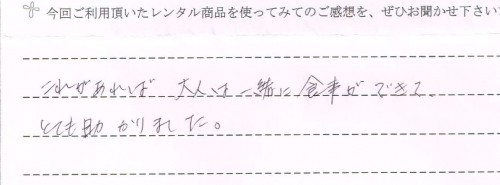 今回ご利用頂いたレンタル商品を使ってみてのご感想を、ぜひお聞かせ下さい
これがあれば 大人は一緒に食事ができて、
とても助かりました。